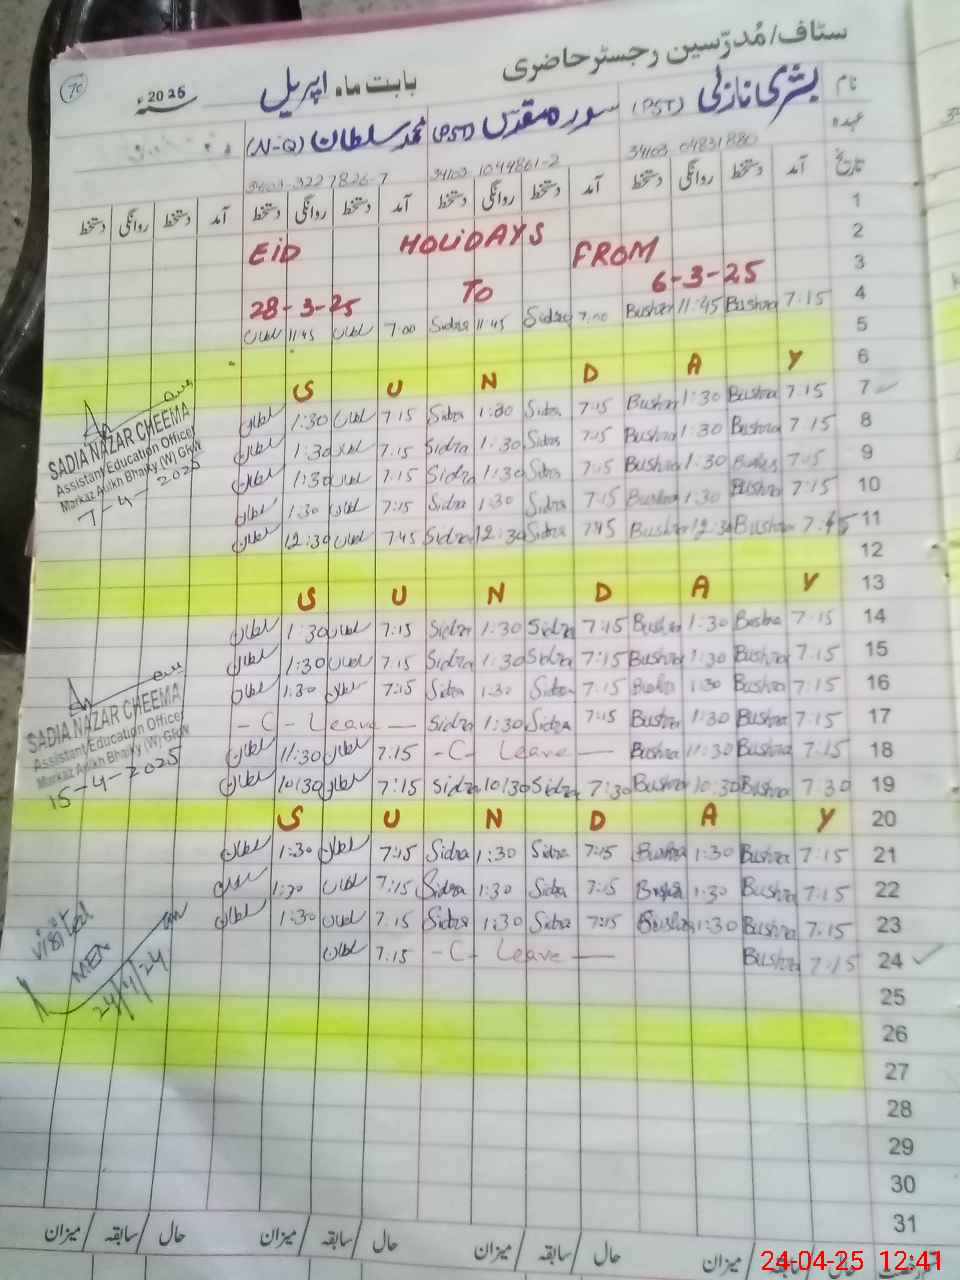 سٹاف/مُدرّسین رجسٹر حاضری
بابت ماہ اپریل 2025ء
نام بشریٰ نازلی (PST) سورہ مقدّس (PST) محمد سلطان (N-Q)
عہدہ
34103-1044861-2 34103-3227826-7
تاریخ آمد دستخط روانگی دستخط آمد دستخط روانگی دستخط آمد دستخط روانگی دستخط آمد دستخط روانگی دستخط
1
2
EiD HOLiDAYS FROM 3
28-3-25 TO 6-3-25 4
سلطان 11:45 سلطان 7:00 Sidra 11:45 Sidra 7:00 Bushra 11:45 Bushra 7:15 5
6
S U N D A Y 7
سلطان 1:30 سلطان 7:15 Sidra 1:30 Sidra 7:15 Bushra 1:30 Bushra 7:15 8
سلطان 1:30 سلطان 7:15 Sidra 1:30 Sidra 7:15 Bushra 1:30 Bushra 7:15 9
سلطان 1:30 سلطان 7:15 Sidra 1:30 Sidra 7:15 Bushra 1:30 Bushra 7:15 10
سلطان 1:30 سلطان 7:15 Sidra 1:30 Sidra 7:15 Bushra 1:30 Bushra 7:15 11
سلطان 12:30 سلطان 7:45 Sidra 12:30 Sidra 7:45 Bushra 12:30 Bushra 7:45
12
S U N D A Y 13
سلطان 1:30 سلطان 7:15 Sidra 1:30 Sidra 7:15 Bushra 1:30 Bushra 7:15 14
سلطان 1:30 سلطان 7:15 Sidra 1:30 Sidra 7:15 Bushra 1:30 Bushra 7:15 15
سلطان 1:30 سلطان 7:15 Sidra 1:30 Sidra 7:15 Bushra 1:30 Bushra 7:15 16
- C - Leave — Sidra 1:30 Sidra 7:15 Bushra 1:30 Bushra 7:15 17
سلطان 11:30 سلطان 7:15 - C - Leave — Bushra 11:30 Bushra 7:15 18
سلطان 10:30 سلطان 7:15 Sidra 10:30 Sidra 7:30 Bushra 10:30 Bushra 7:30 19
S U N D A Y 20
سلطان 1:30 سلطان 7:15 Sidra 1:30 Sidra 7:15 Bushra 1:30 Bushra 7:15 21
سلطان 1:30 سلطان 7:15 Sidra 1:30 Sidra 7:15 Bushra 1:30 Bushra 7:15 22
سلطان 1:30 سلطان 7:15 Sidra 1:30 Sidra 7:15 Bushra 1:30 Bushra 7:15 23
سلطان 7:15 - C - Leave — Bushra 7:15 24
25
26
27
28
29
30
31
SADIA NAZAR CHEEMA
Assistant Education Officer
Markaz Aulkh Bhaiky (W) Grw
7-4-2025
SADIA NAZAR CHEEMA
Assistant Education Officer
Markaz Aulkh Bhaiky (W) Grw
15-4-2025
visited
MEA
24/4/24
سابقہ / میزان حال / سابقہ / میزان حال / سابقہ / میزان حال / سابقہ / میزان حال
24-04-25 12:41